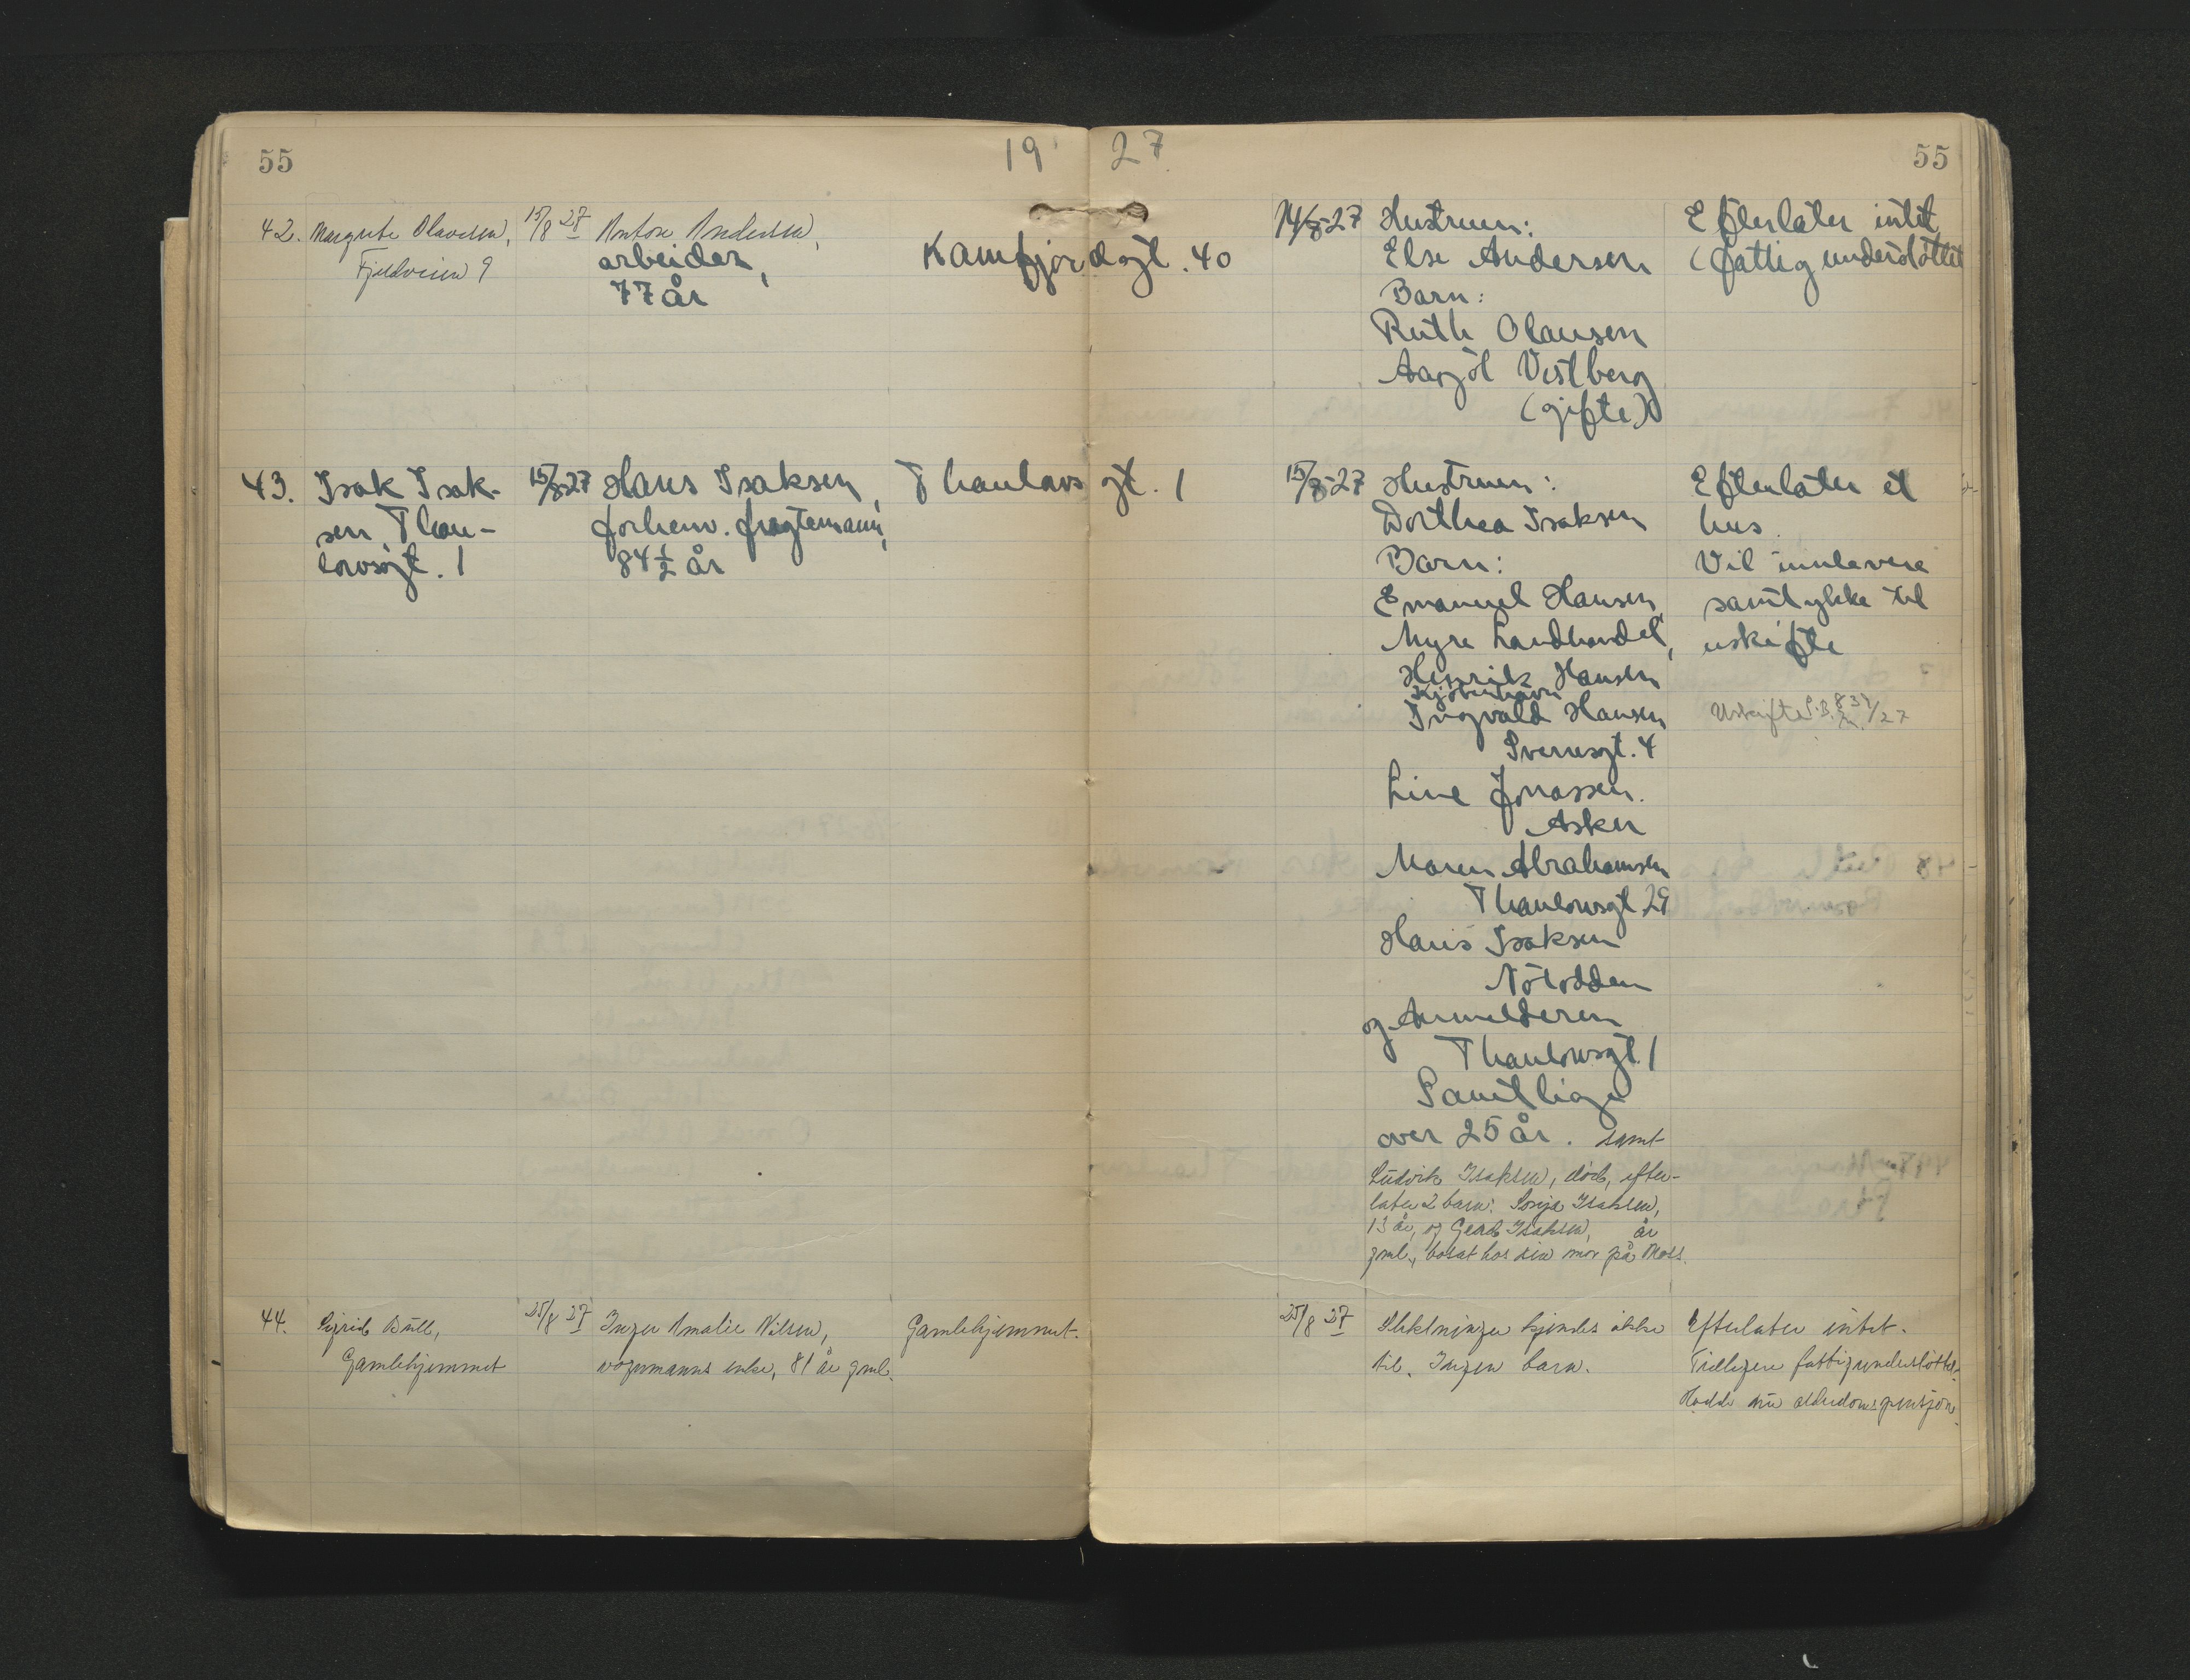 55
19 27
55
42. Margrete Olavesen, 15/8 27 Anton Andersen,
Fjeldveien 9
arbeider,
77 år
Kamfjordgt. 40
14/8-27 Hustruen:
Else Andersen
Barn:
Ruth Olausen
Aagot Vestberg
(gifte)
Efterlater intet
(fattigunderstøttet
43. Isak Isak-
sen, Thau-
lowsgt. 1
15/8-27 Hans Isaksen,
forhenv. fragtemann,
84 1/2 år
Thaulows gt. 1
15/8-27 Hustruen:
Dorthea Isaksen
Barn:
Emanuel Hansen,
Myre Landhandel,
Henrik Hansen
Kjøbenhavn
Ingvald Hansen
Sverresgt. 4
Line Jonassen.
Asker
Maren Abrahamsen
Thaulowsgt 29
Hans Isaksen
Nòtodden
og Anmelderen
Thaulowsgt. 1
Samtlige
over 25 år. samt
Ludvik Isaksen, død, efter-
later 2 barn: Sonja Isaksen,
13 år, og Gerd Isaksen, år
gml., bosat hos sin mor på Moss.
Efterlater et
hus
Vil innlevere
samtykke til
uskifte
Uskifte S.B. 27
44. Sigrid Bull,
Gamlehjemmet
25/8 27 Inger Amalie Nilsen,
vognmanns enke, 81 år gml.
Gamlehjemmet.
25/8 27 Slektninger kjendes ikke
til. Ingen barn.
Efterlater intet.
Tidligere fattigunderstøttet.
Hadde nu alderdomspensjon.